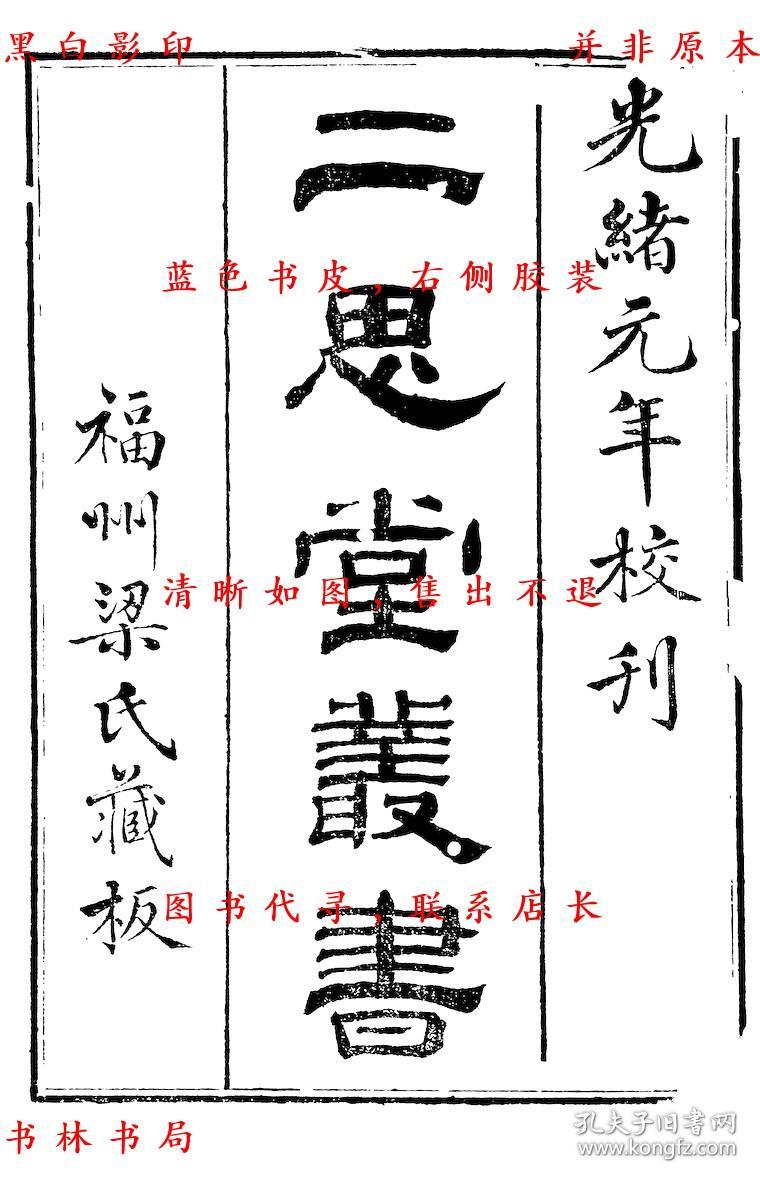 黑白影印
并非原本
光緒元年校刊
二思堂叢書
福州梁氏藏板
蓝色书皮，右侧胶装
清晰如图，售出不退
图书代寻，联系店长
书林书局
孔夫子旧书网
www.kongfz.com